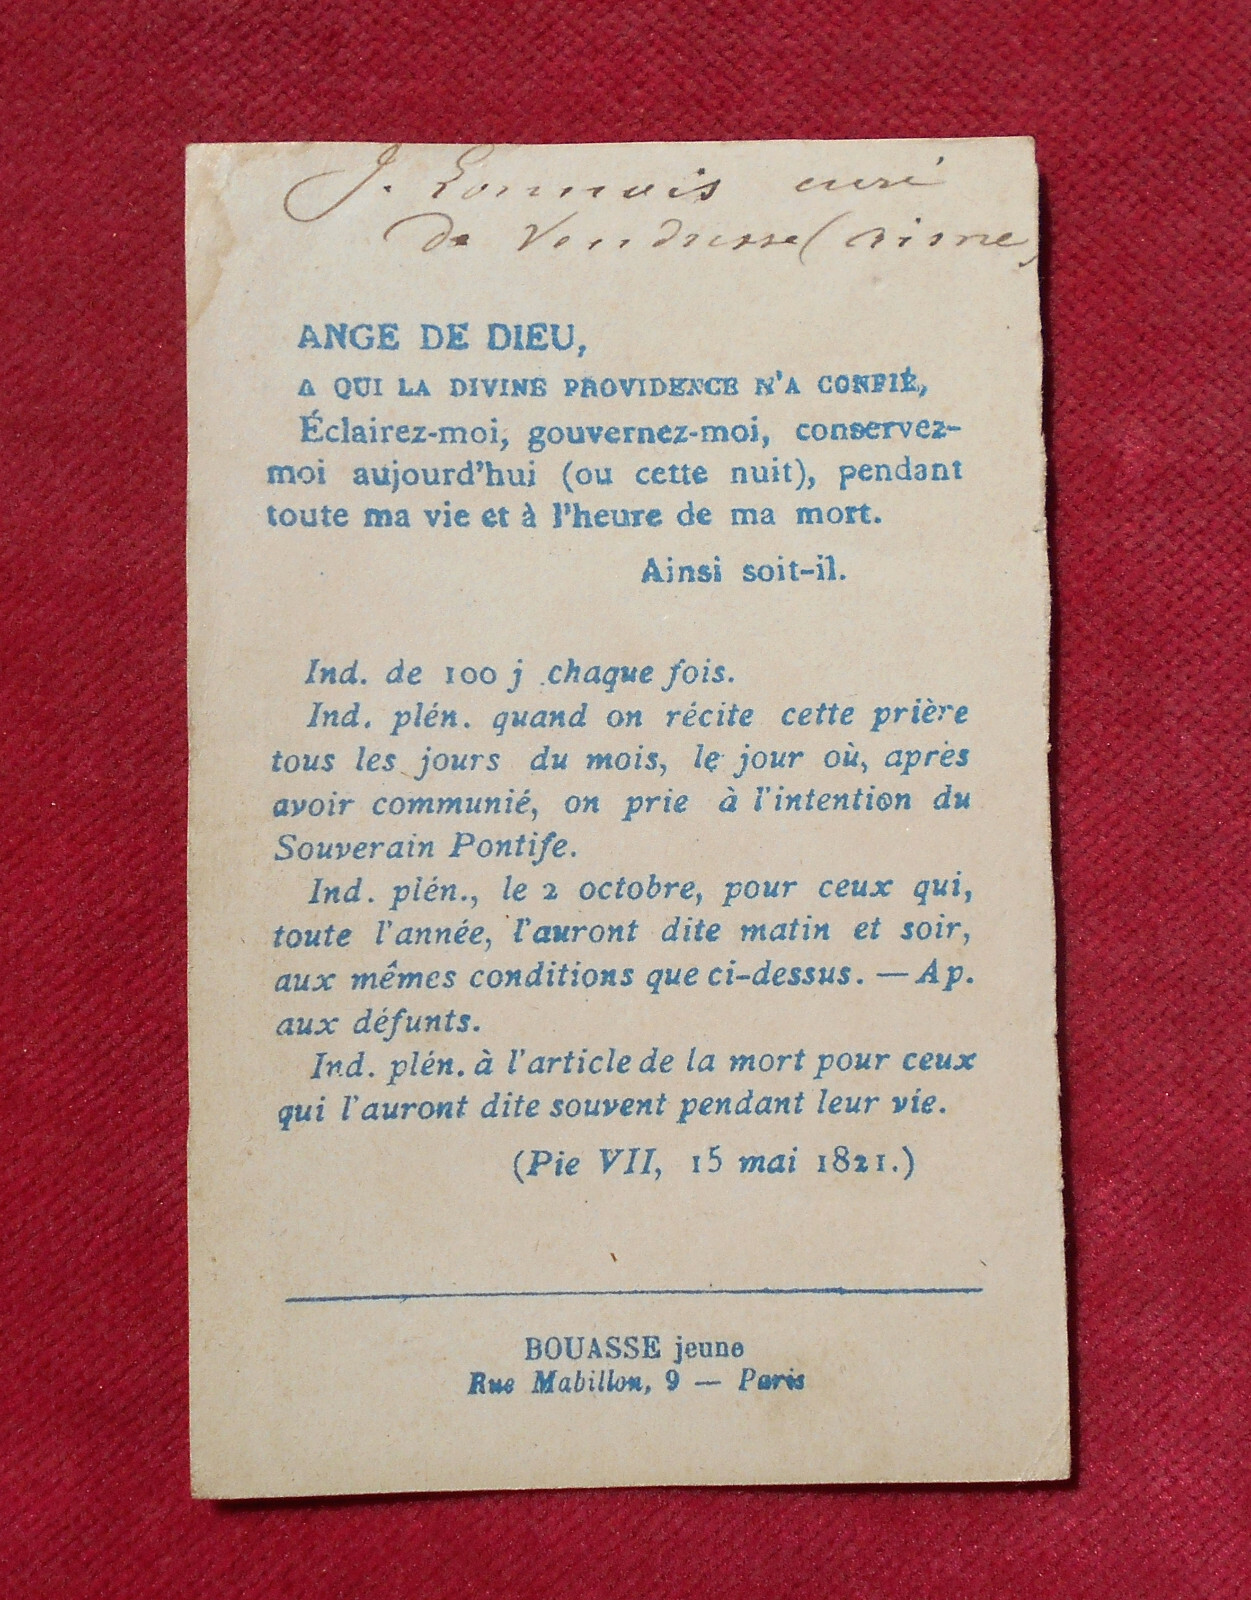 J. Lonnois curé
de Vendresse (Aisne)
ANGE DE DIEU,
A QUI LA DIVINE PROVIDENCE M'A CONFIÉ,
Éclairez-moi, gouvernez-moi, conservez-
moi aujourd'hui (ou cette nuit), pendant
toute ma vie et à l'heure de ma mort.
Ainsi soit-il.
Ind. de 100 j chaque fois.
Ind. plén. quand on récite cette prière
tous les jours du mois, le jour où, après
avoir communié, on prie à l'intention du
Souverain Pontife.
Ind. plén., le 2 octobre, pour ceux qui,
toute l'année, l'auront dite matin et soir,
aux mêmes conditions que ci-dessus. — Ap.
aux défunts.
Ind. plén. à l'article de la mort pour ceux
qui l'auront dite souvent pendant leur vie.
(Pie VII, 15 mai 1821.)
BOUASSE jeune
Rue Mabillon, 9 — Paris